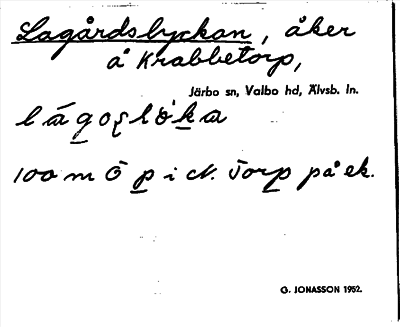 Lagårdslyckan, åker
å Krabbetorp,
Järbo sn, Valbo hd, Älvsb. ln.
100 m Ö p i N. Torp på ek.
G. JONASSON 1952.